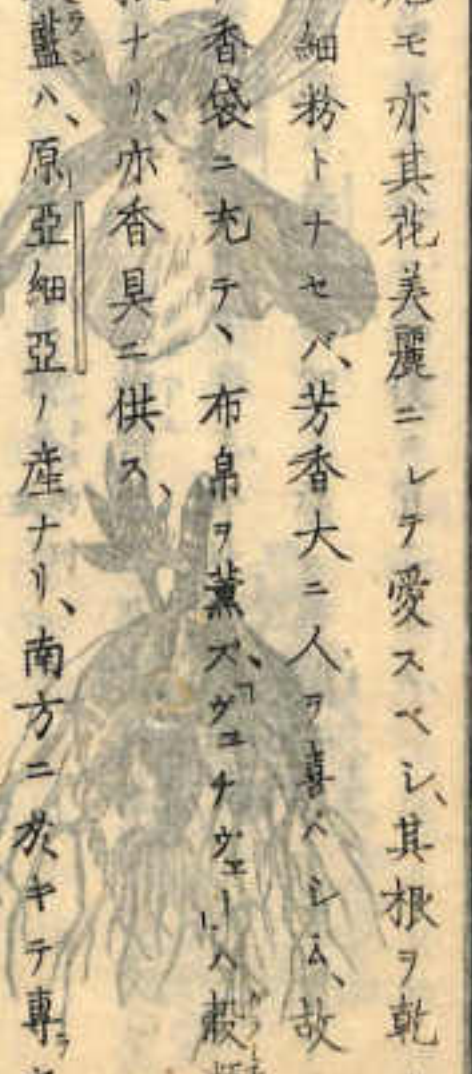 モ亦其花美麗ニシテ愛スベシ、其根ヲ乾
細粉トナセバ、芳香大ニ人ヲ喜バシム、故
香袋ニ充テヽ布帛ヲ薫ズ、ヴェチヴェールハ
ナリ、亦香具ニ供ス、
藍ハ、原亜細亜ノ産ナリ、南方ニ於キテ専ラ